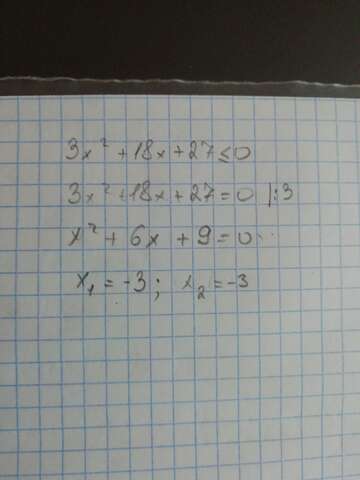 3x² + 18x + 27 ≤ 0
3x² + 18x + 27 = 0 |:3
x² + 6x + 9 = 0
x₁ = -3; x₂ = -3